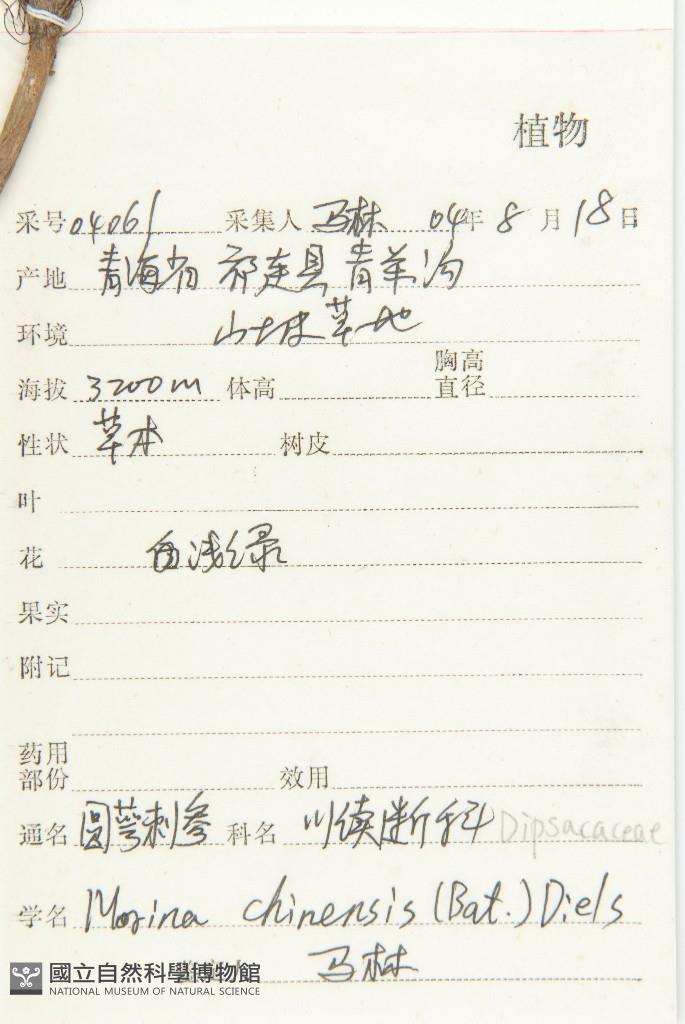 植物
采号 04061 采集人 马林 04年 8月 18日
产地 青海省 祁连县 青羊沟
环境 山坡草地
海拔 3200m 体高 胸高直径
性状 草本 树皮
叶
花 白浅绿
果实
附记
药用部份 效用
通名 圆萼刺参 科名 川续断科 Dipsacaceae
学名 Morina chinensis (Bat.) Diels
马林
國立自然科學博物館
NATIONAL MUSEUM OF NATURAL SCIENCE